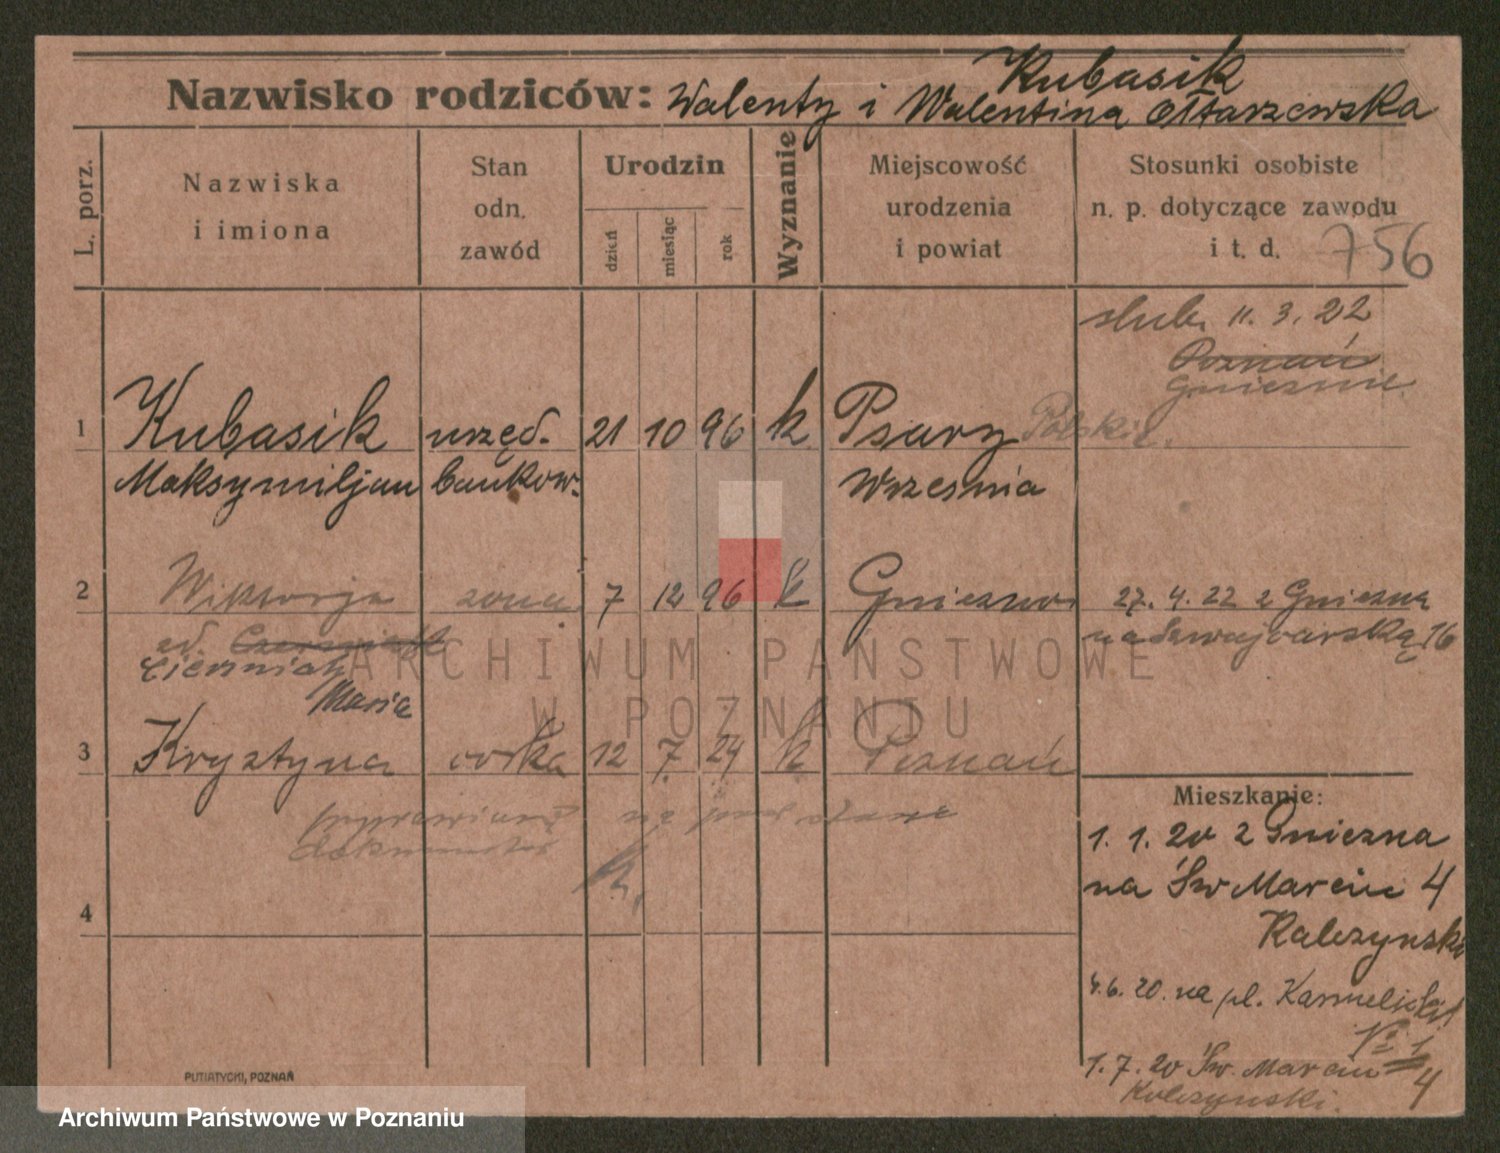 Kubasik
Nazwisko rodziców: Walenty i Walentina Ołtarzewska
L. porz.
Nazwiska
i imiona
Stan
odn.
zawód
Urodzin
dzień
miesiąc
rok
Wyznanie
Miejscowość
urodzenia
i powiat
Stosunki osobiste
n. p. dotyczące zawodu
i t. d.
756
ślub. 11. 3. 22
Poznań
Gnieznie.
1 Kubasik urzęd. 21 10 96 k Psary Polskie.
Maksymiljan bankow. Września
2 Wiktorja żona 7 12 96 k Gniezno 27. 4. 22 z Gniezna
na Szwajcarską 16
Maria
3 Krystyna córka 12 7 24 k Poznań
na
dokumentów
4
Mieszkanie:
1. 1. 20 z Gniezna
na Św Marcin 4
Kalczynski
4. 6. 20. na pl. Karmelicki
No 1
1. 7. 20 Św. Marcin 4
Kolczynski.
PUTIATYCKI, POZNAŃ
ARCHIWUM PAŃSTWOWE
W POZNANIU
Archiwum Państwowe w Poznaniu